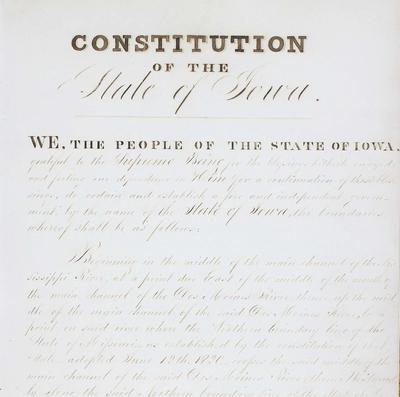 CONSTITUTION
OF THE
State of Iowa.
WE, THE PEOPLE OF THE STATE OF IOWA,
grateful to the Supreme Being for the blessings hitherto enjoyed,
and feeling our dependence on Him for a continuation of those bless
ings, do ordain and establish a free and independent govern
ment, by the name of the State of Iowa, the boundaries
whereof shall be as follows:
Beginning in the middle of the main channel of the Mis
sissippi River, at a point due East of the middle of the mouth of
the main channel of the Des Moines River, thence up the mid
dle of the main channel of the said Des Moines River, to a
point on said river where the Northern boundary line of the
State of Missouri, as established by the constitution of that
State, adopted June 12th, 1820, crosses the said middle of the
main channel of the said Des Moines River; thence Westwardly
by along the said Northern boundary line of the State of